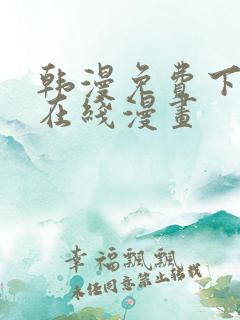 韩漫免费下
在线漫畫
幸福飄飄
未经同意禁止转载